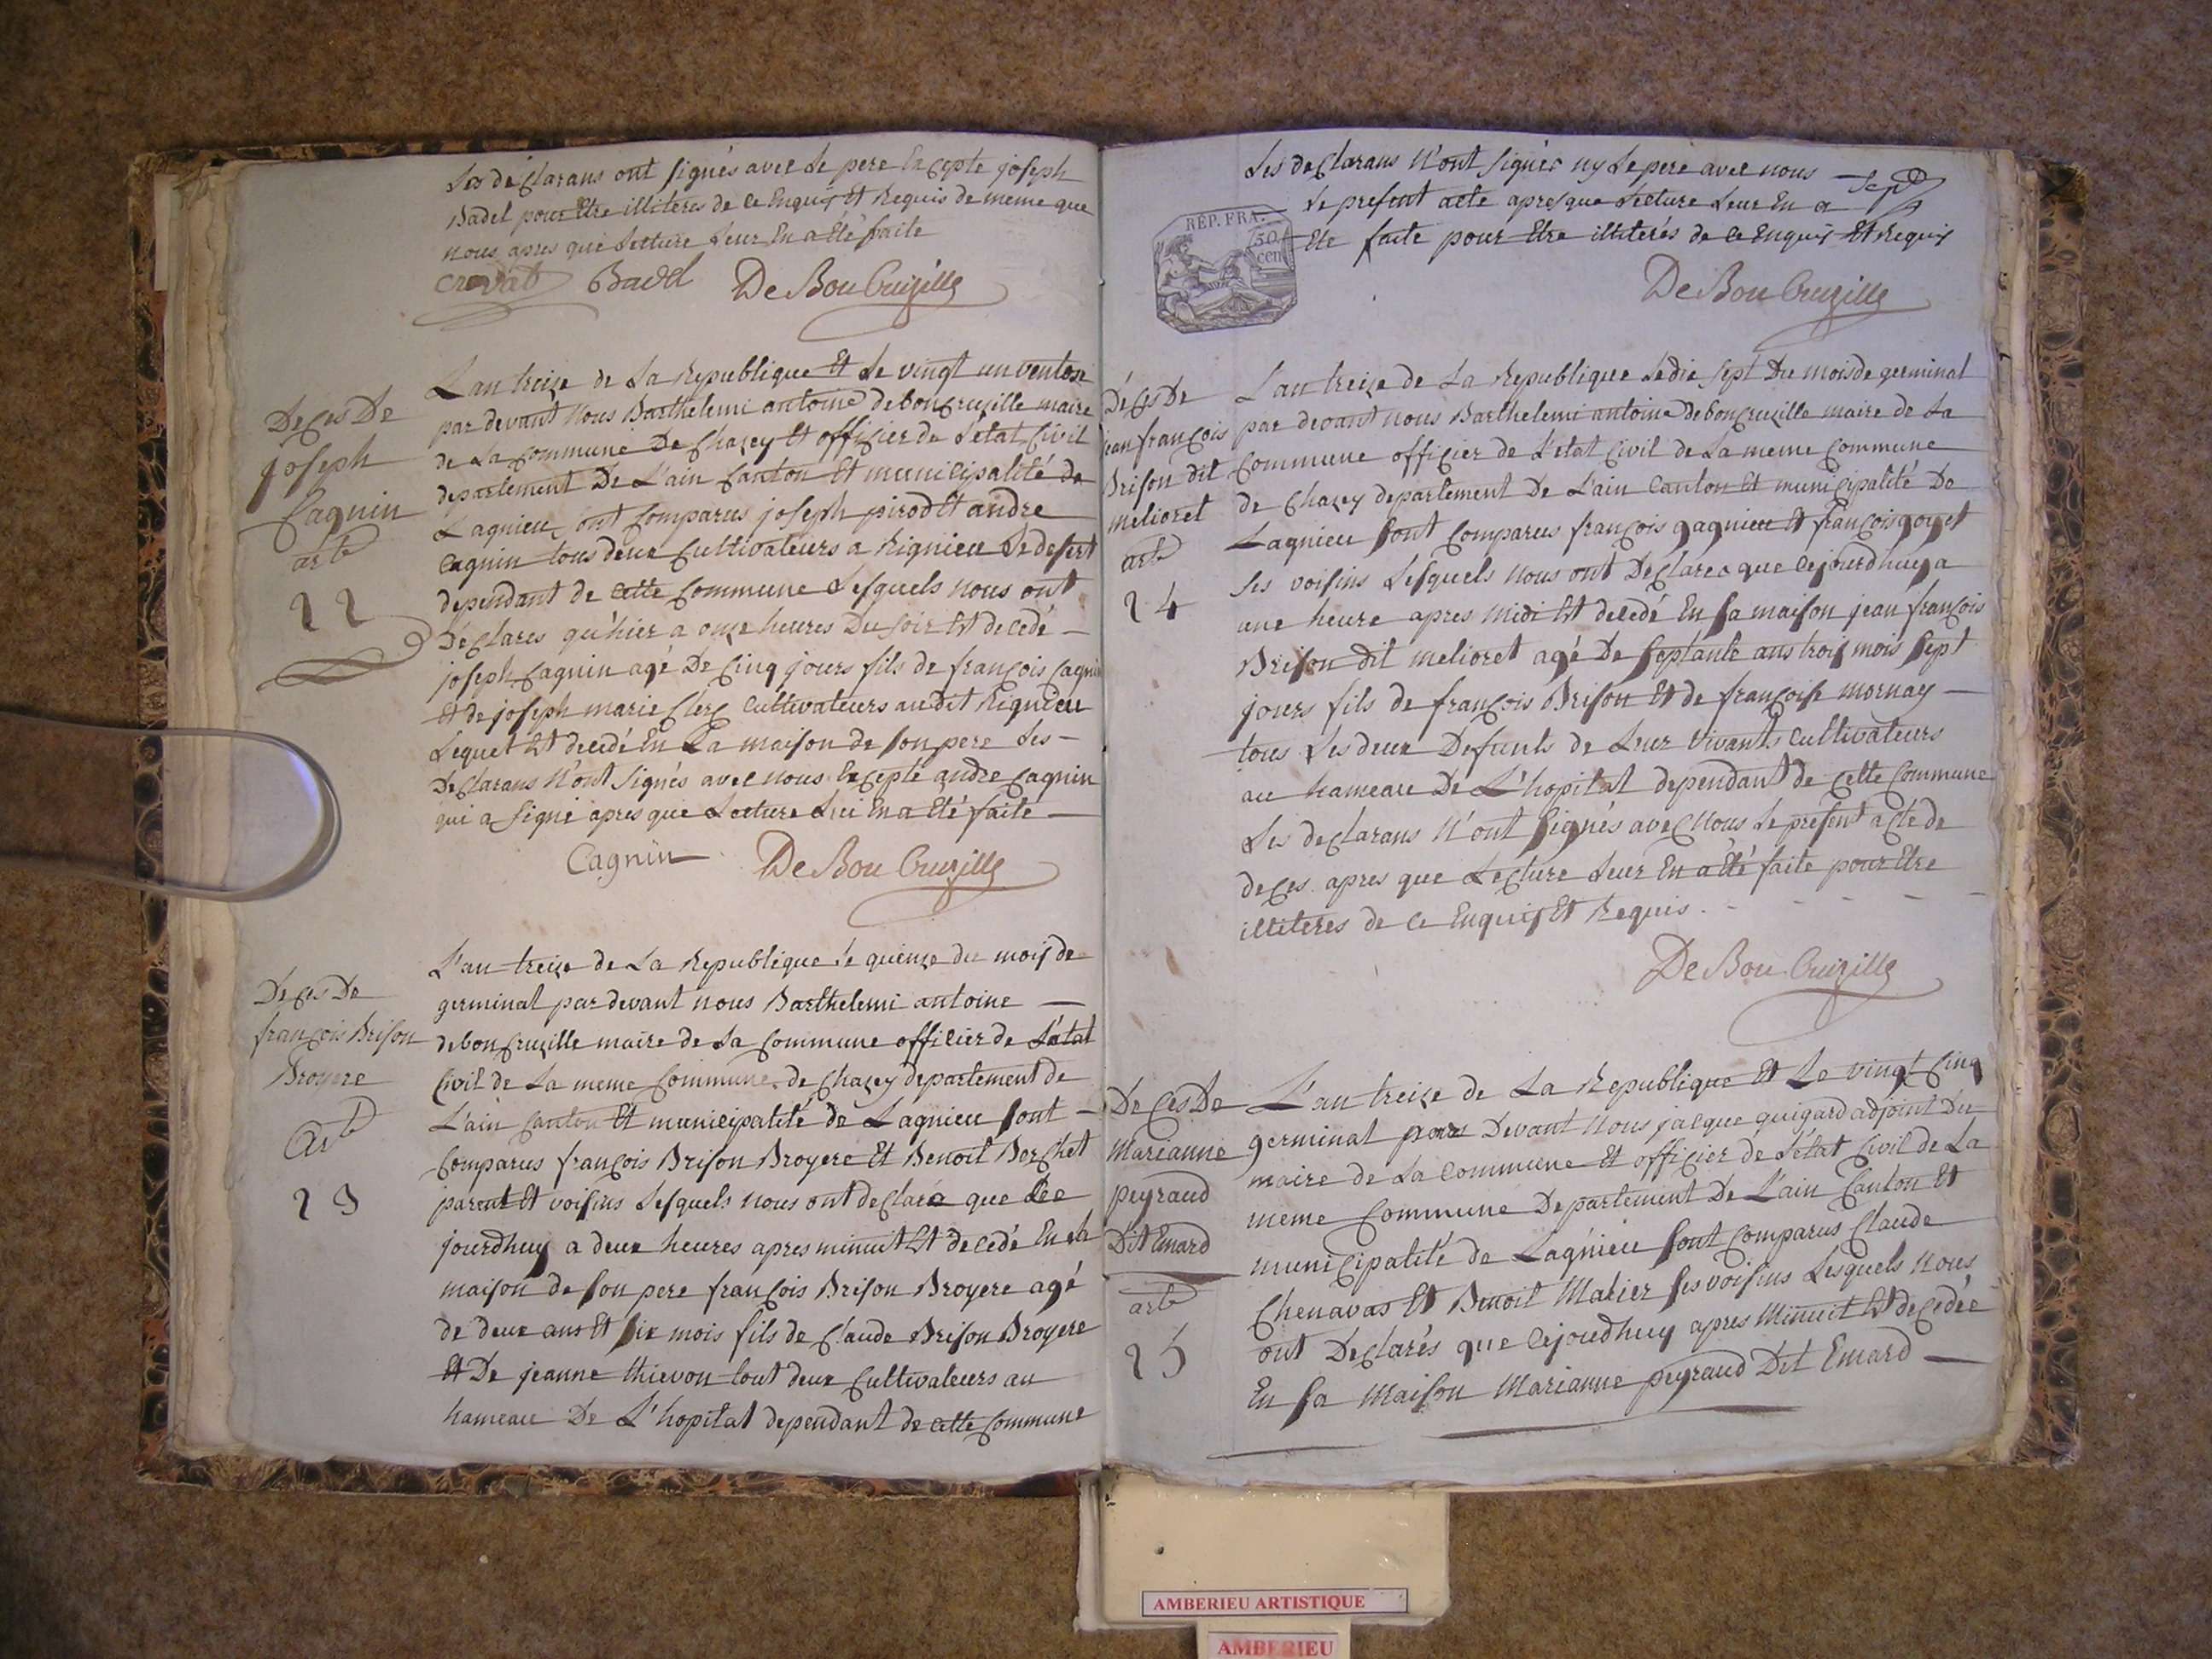 Les déclarans ont signés avec le pere Excepte joseph
Badel pour Etre illiteres de ce Enquis Et Requis de meme que
nous apres que Lecture Leur En a Eté faite
crovat Badel De Bou Cruzille
Deces De
joseph
Cagnin
arte
22
L'an treize de La Republique Et Le vingt un ventose
par devant Nous Barthelemi antoine deboucruzille maire
de La Commune De Chazey Et officier de Letat Civil
departement De L'ain Canton Et municipalité de
Lagnieu, ont Comparus joseph pirod Et andre
Cagnin tous deux Cultivateurs a Rignieu Le desert
dependant de Cette Commune Lesquels nous ont
Déclares qu'hier a onze heures Du soir Est decedé
joseph Cagnin agé De Cinq jours fils de françois Cagnin
Et de joseph marie Clerc Cultivateurs au dit Rignieu
Lequel Est decedé En La maison de son pere Les
Declarans N'ont signés avec nous Excepté andre Cagnin
qui a signé apres que Lecture Lui En a Eté faite
Cagnin De Bou Cruzille
Deces De
françois Brison
Broyere
arte
23
L'an treize de La Republique Le quinze du mois de
germinal par devant nous Barthelemi antoine
deboucruzille maire de La Commune officier de L'état
Civil de La meme Commune de Chazey departement de
L'ain Canton Et municipalité de Lagnieu sont
Comparus françois Brison Broyere Et Benoit Berchet
parent Et voisins Lesquels nous ont declaré que Ce
jourdhuy a deux heures apres minuit Est decedé En la
maison de son pere françois Brison Broyere agé
de deux ans Et six mois fils de Claude Brison Broyere
Et De jeanne thievon tout deux Cultivateurs au
hameau De L'hopital dependant de cette Commune
Les declarans N'ont signés ny Le pere avec nous
Le present acte apres que Lecture Leur En a
Eté faite pour Etre illiterés de ce Enquis Et Requis
REP. FRA.
50
cen
De Bou Cruzille
Déces De
jean françois
Brison dit
melioret
arte
24
L'an treize de La Republique Le dix sept Du mois de germinal
par devant nous Barthelemi antoine deboucruzille maire de La
Commune officier de L'etat Civil de La meme Commune
de Chazey departement De L'ain Canton Et municipalité De
Lagnieu sont Comparus françois gagnieu Et françois goyet
ses voisins Lesquels nous ont Declares que cejourdhuy a
une heure apres midi Est decedé En sa maison jean françois
Brison dit melioret agé De septante ans trois mois sept
jours fils de françois Brison Et de françoise mornay
tous Les deux Defunts de Leur vivants Cultivateurs
au hameau De L'hopital dependant de Cette Commune
Les declarans N'ont signés avec Nous Le present acte de
deces apres que Lecture Leur En a Eté faite pour Etre
illiteres de ce Enquis Et Requis.
De Bou Cruzille
De Ces De
Marianne
peyraud
Dit Emard
arte
25
L'an treize de La Republique Et Le vingt Cinq
germinal par Devant Nous jacque quigard adjoint Du
maire de La Commune Et officier de L'état Civil de La
meme Commune Departement De L'ain Canton Et
municipalité de Lagnieu sont Comparus Claude
Chenavas Et Benoit Marier ses voisins Lesquels Nous
ont Declarés que Cejourdhuy apres Minuit Est decedée
En sa Maison Marianne peyraud Dit Emard
AMBERIEU ARTISTIQUE
AMBERIEU